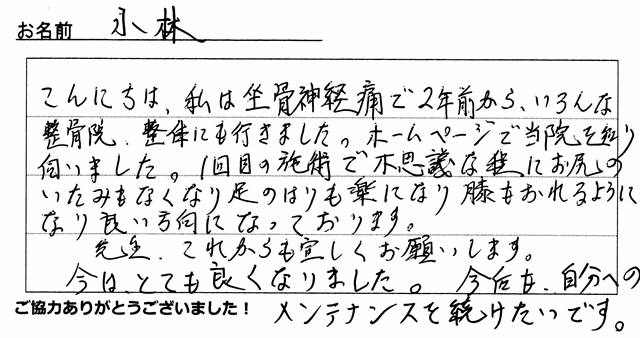 お名前 小林
こんにちは、私は坐骨神経痛で2年前から、いろんな
整骨院、整体にも行きました。ホームページで当院を知り
伺いました。1回目の施術で不思議な程にお尻の
いたみもなくなり足のはりも楽になり膝もおれるように
なり良い方向になっております。
先生、これからも宜しくお願いします。
今は、とても良くなりました。今后も、自分への
ご協力ありがとうございました！ メンテナンスを続けたいです。